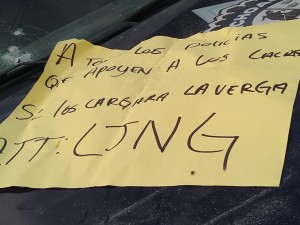 A TO LOS POLICIAS
QE APOYEN A LOS CACR
SE LOS CARGARA LA VERGA
ATT: CJNG